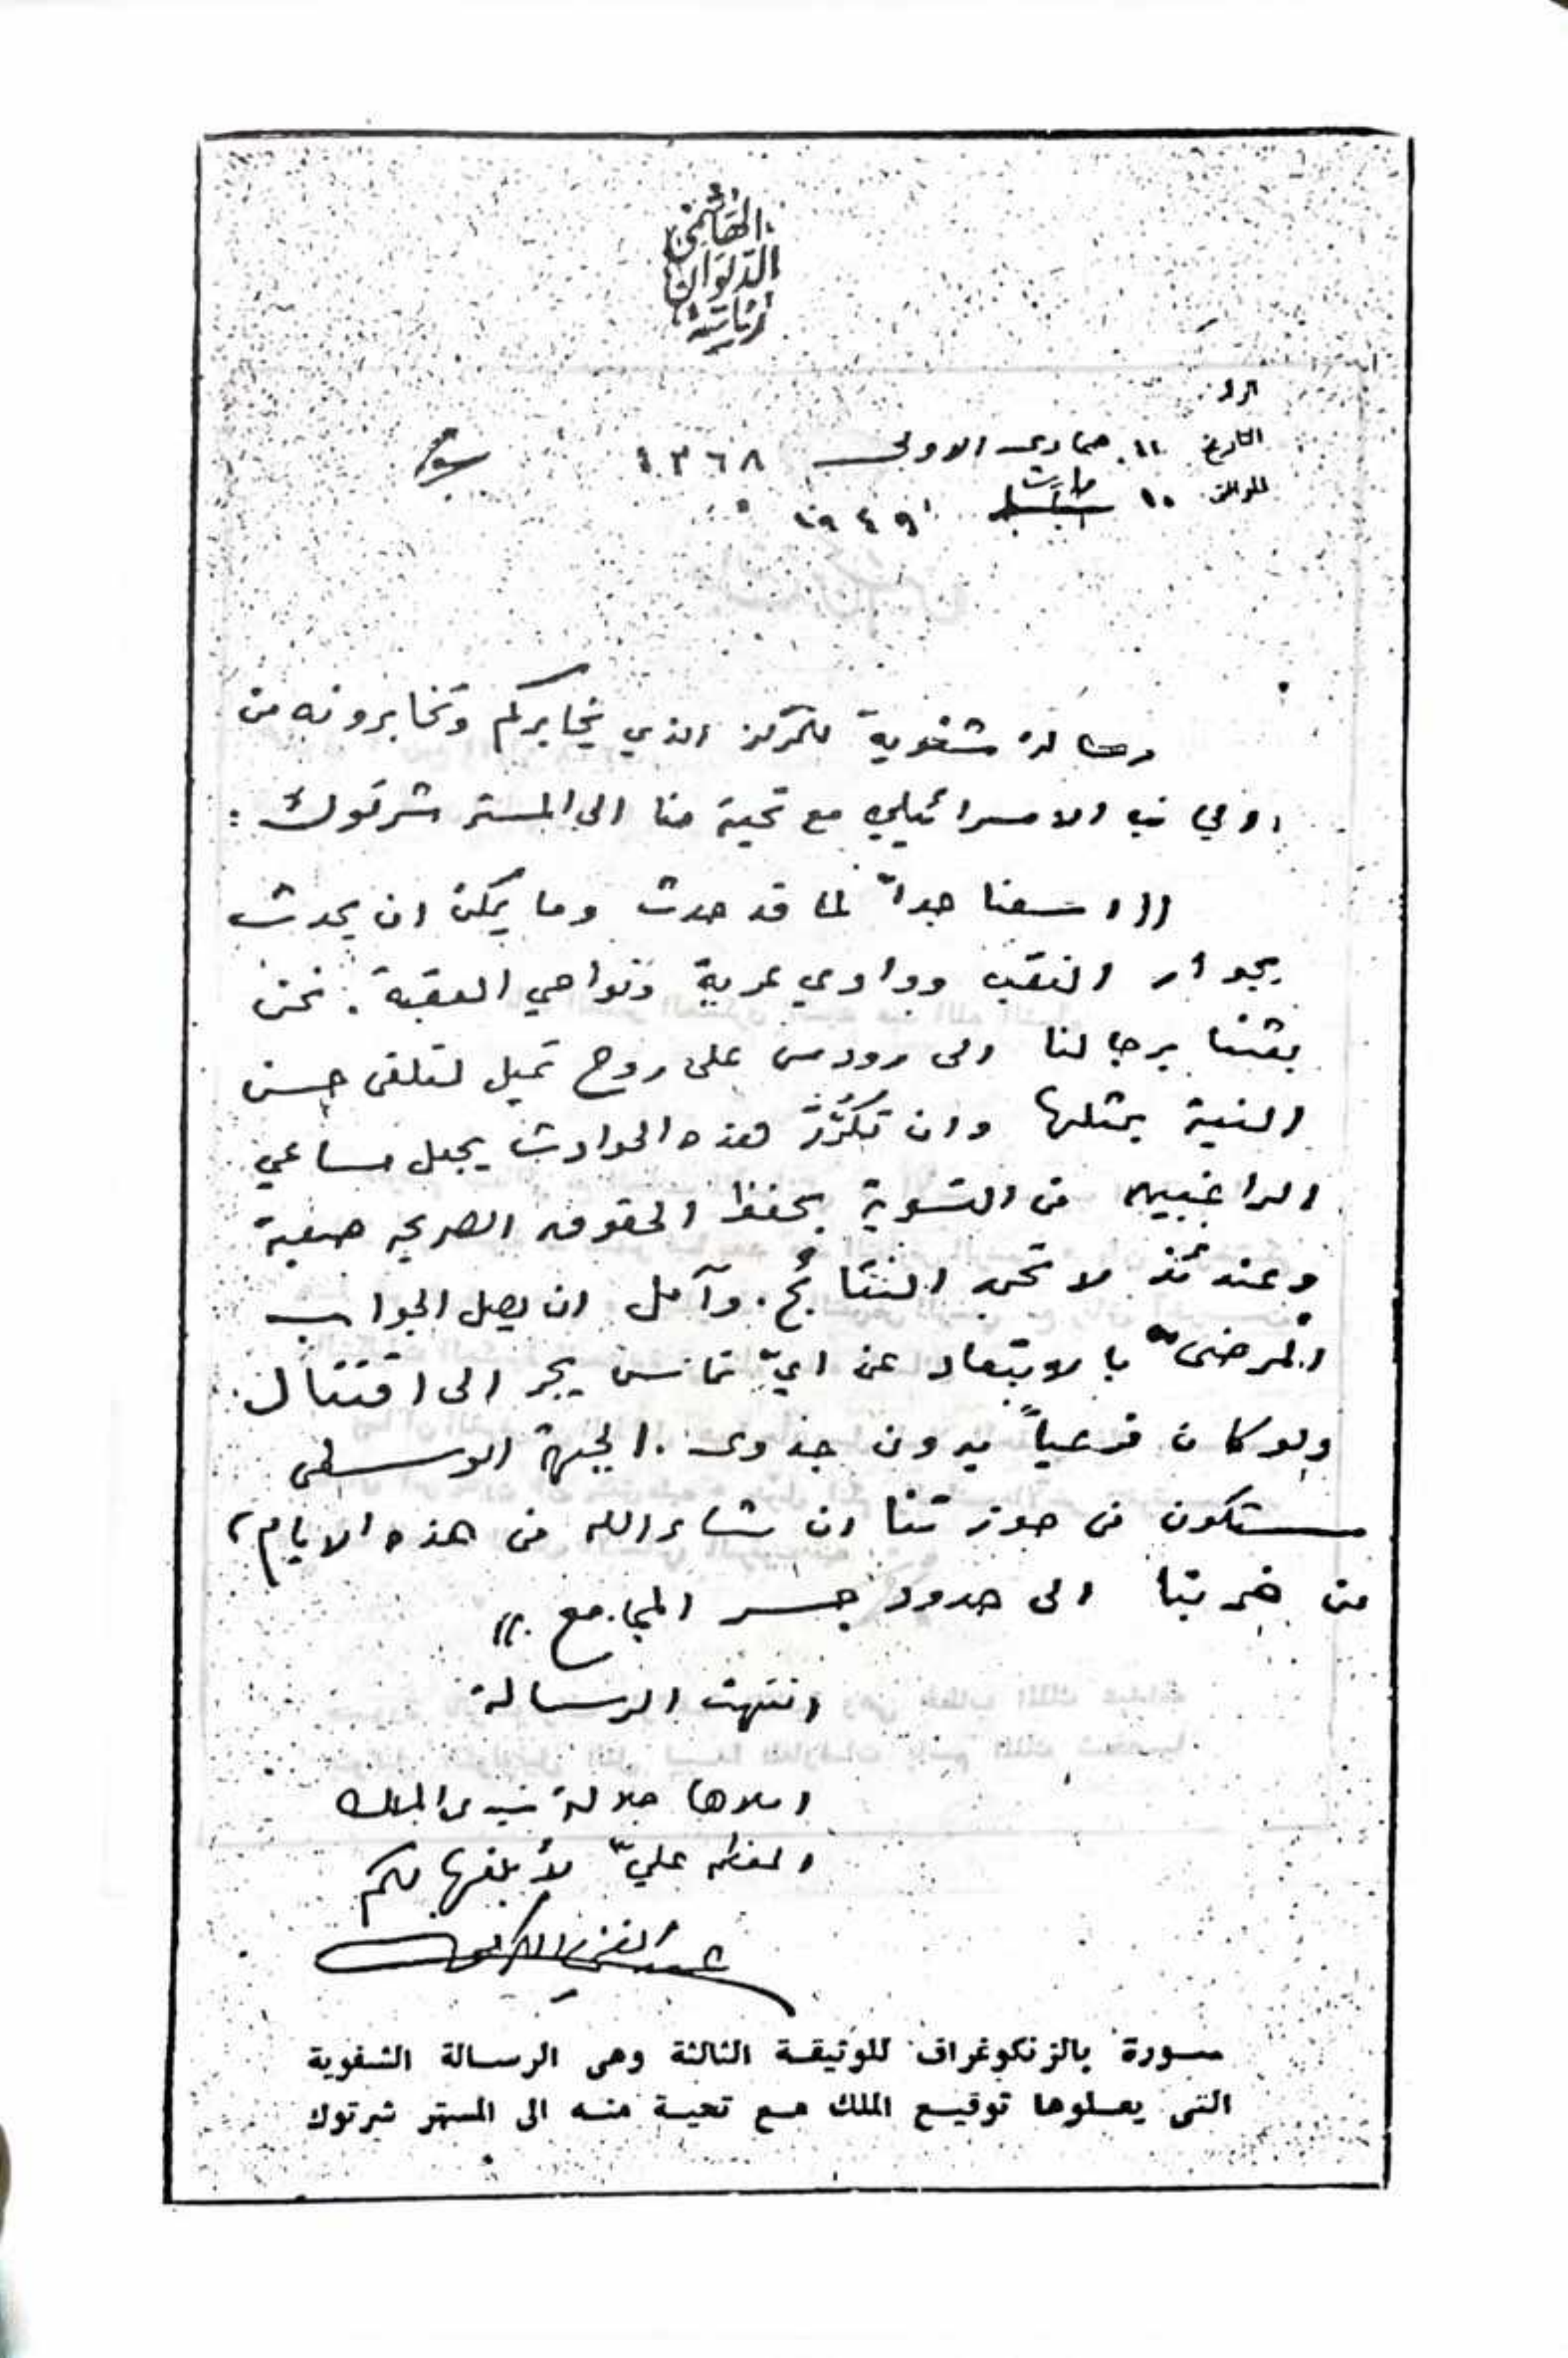 رئاسة
الديوان
الهاشمي
الرقم
التاريخ ١١ جمادى الاولى ١٣٦٨
الموافق ١٠ شباط مارت ١٩٤٩
رسالة شفوية للمركز الذي يخابركم وتخابرونه من
الجانب الاسرائيلي مع تحية منا الى المستر شرتوك :
((اسفنا جداً لما قد حدث وما يمكن ان يحدث
بجوار النقب ووادي عربة ونواحي العقبة . نحن
بعثنا برجالنا الى رودس على روح تميل لتلقى حسن
النية بمثلها وان تكرُّرَ هذه الحوادث يجعل مساعي
الراغبين في التسوية بحفظ الحقوق الصريحه صعبة
وعندئذ لا تحمد النتائج . وآمل ان يصل الجواب
المرضى بالابتعاد عن ايّ تماس يجر الى اقتتال
ولو كان فرعياً بدون جدوى . الجبهة الوسطى
ستكون في حوزتنا ان شاء الله في هذه الايام ،
من الى حدود جسر المجامع . ))
انتهت الرسالة
املاها جلالة سيدى الملك
المعظم عليّ لأبلغها لكم
صورة بالزنكوغراف للوثيقة الثالثة وهى الرسالة الشفوية
التى يعلوها توقيع الملك مع تحية منه الى المستر شرتوك